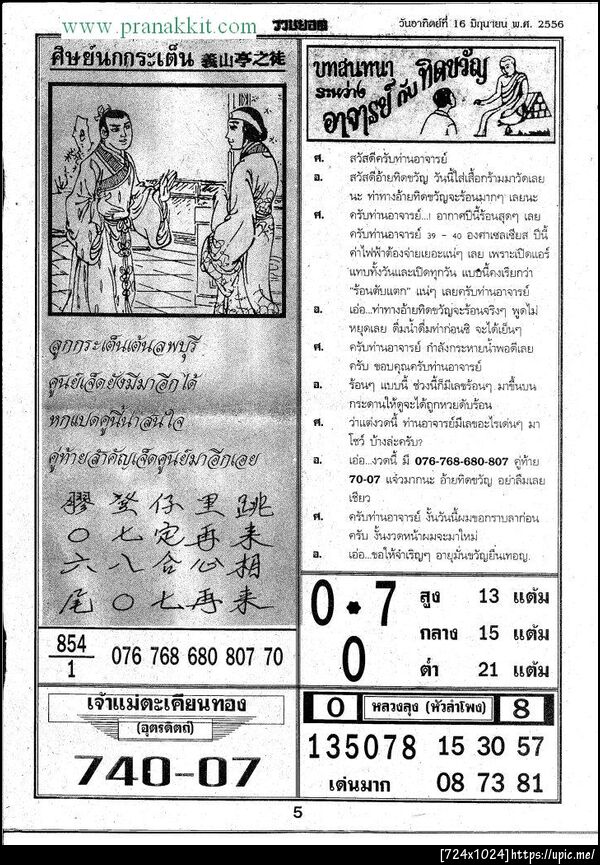 www.pranakkit.com
รวบยอด
วันอาทิตย์ที่ 16 มิถุนายน พ.ศ. 2556
ศิษย์นกกระเต็น 義山亭之徒
ลูกกระเต็นเต้นลพบุรี
ศูนย์เจ็ดยังมีมาอีกได้
หกแปดคู่นี้น่าสนใจ
คู่ท้ายสำคัญเจ็ดศูนย์มาอีกเอย
膠 發 仔 里 跳
〇 七 定 再 来
六 八 合 心 相
尾 〇 七 再 来
854
1
076 768 680 807 70
เจ้าแม่ตะเคียนทอง
(อุตรดิตถ์)
740-07
บทสนทนา
ระหว่าง
อาจารย์ กับ ทิดขวัญ
ศ. สวัสดีครับท่านอาจารย์
อ. สวัสดีอ้ายทิดขวัญ วันนี้ใส่เสื้อกร้ามมาวัดเลย
นะ ท่าทางอ้ายทิดขวัญจะร้อนมากๆ เลยนะ
ศ. ครับท่านอาจารย์...! อากาศปีนี้ร้อนสุดๆ เลย
ครับท่านอาจารย์ 39 - 40 องศาเซลเซียส ปีนี้
ค่าไฟฟ้าต้องจ่ายเยอะแน่ๆ เลย เพราะเปิดแอร์
แทบทั้งวันและเปิดทุกวัน แบบนี้คงเรียกว่า
"ร้อนตับแตก" แน่ๆ เลยครับท่านอาจารย์
อ. เอ่อ...ท่าทางอ้ายทิดขวัญจะร้อนจริงๆ พูดไม่
หยุดเลย ดื่มน้ำดื่มท่าก่อนซิ จะได้เย็นๆ
ศ. ครับท่านอาจารย์ กำลังกระหายน้ำพอดีเลย
ครับ ขอบคุณครับท่านอาจารย์
อ. ร้อนๆ แบบนี้ ช่วงนี้ก็มีเลขร้อนๆ มาขึ้นบน
กระดานให้ดูจะได้ถูกหวยดับร้อน
ศ. ว่าแต่งวดนี้ ท่านอาจารย์มีเลขอะไรเด่นๆ มา
โชว์ บ้างล่ะครับ?
อ. เอ่อ...งวดนี้ มี 076-768-680-807 คู่ท้าย
70-07 แจ๋วมากนะ อ้ายทิดขวัญ อย่าลืมเลย
เชียว
ศ. ครับท่านอาจารย์ งั้นวันนี้ผมขอกราบลาก่อน
ครับ งั้นงวดหน้าผมจะมาใหม่
อ. เอ่อ...ขอให้จำเริญๆ อายุมั่นขวัญยืนเทอญ.
0 * 7
0
สูง 13 แต้ม
กลาง 15 แต้ม
ต่ำ 21 แต้ม
0 หลวงลุง (หัวลำโพง) 8
135078 15 30 57
เด่นมาก 08 73 81
5
[724x1024]https://upic.me/